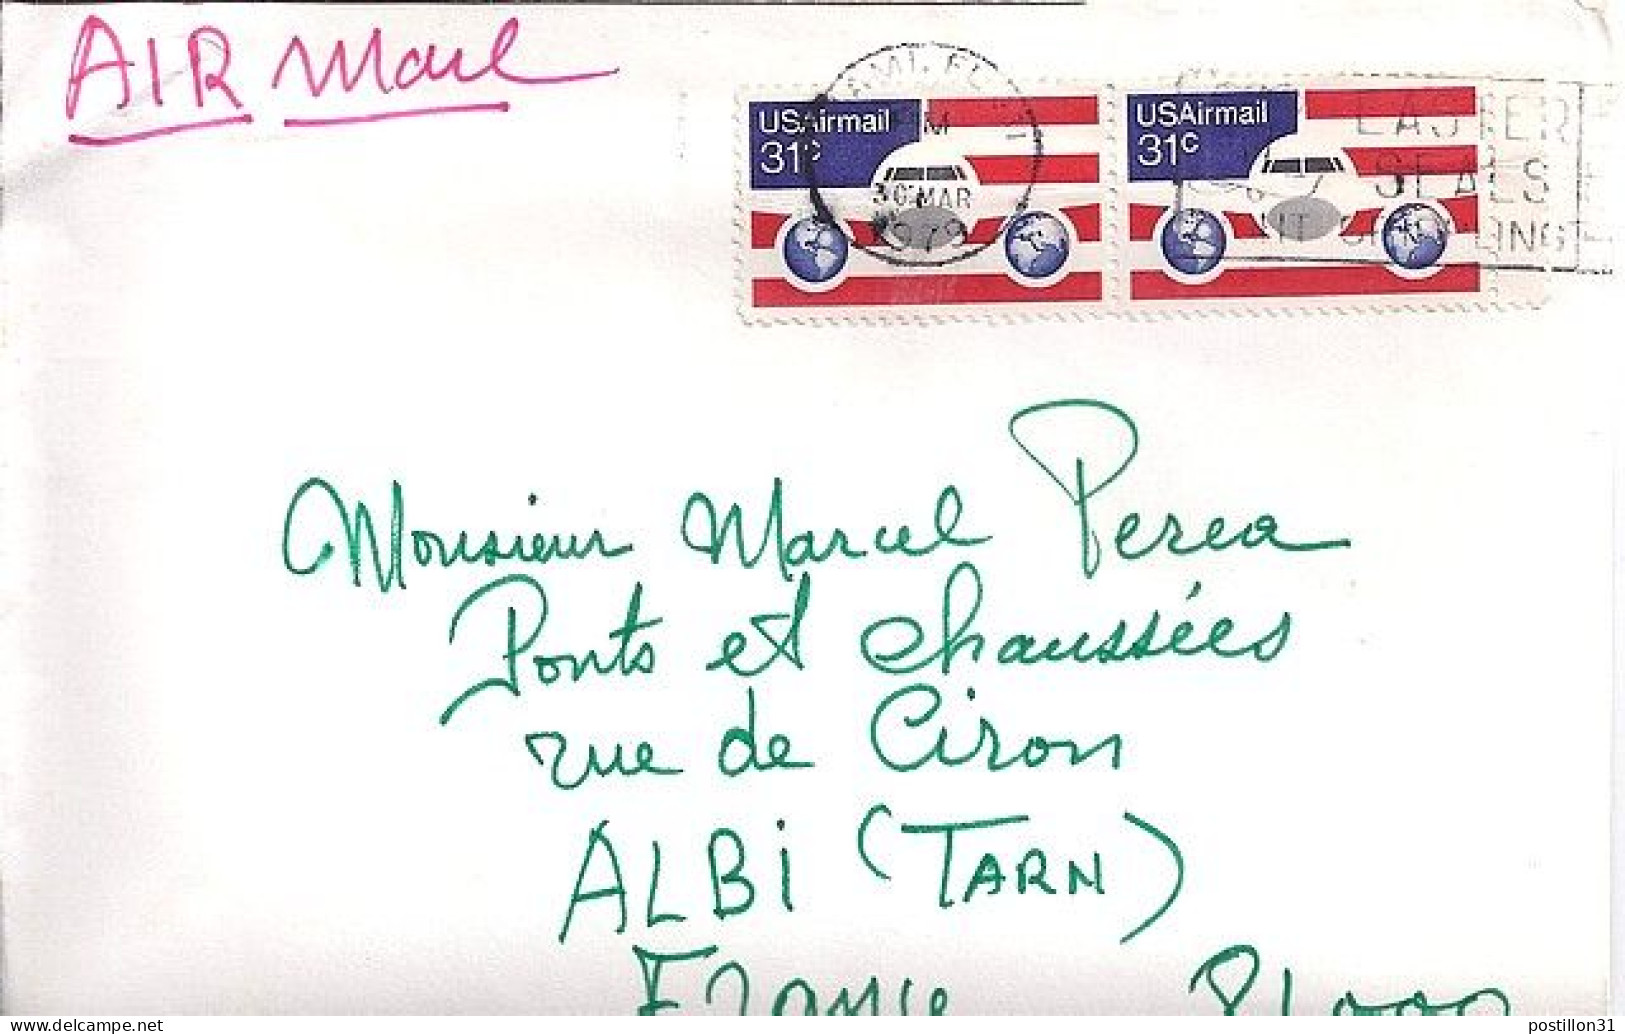 AIR Mail
USAirmail
31c
USAirmail
31c
PM
30 MAR
1979
EASTER
SEALS
Monsieur Marcel Perea
Ponts et chaussées
rue de Ciron
ALBi (TARN)
France 81000
delcampe.net
postillon31